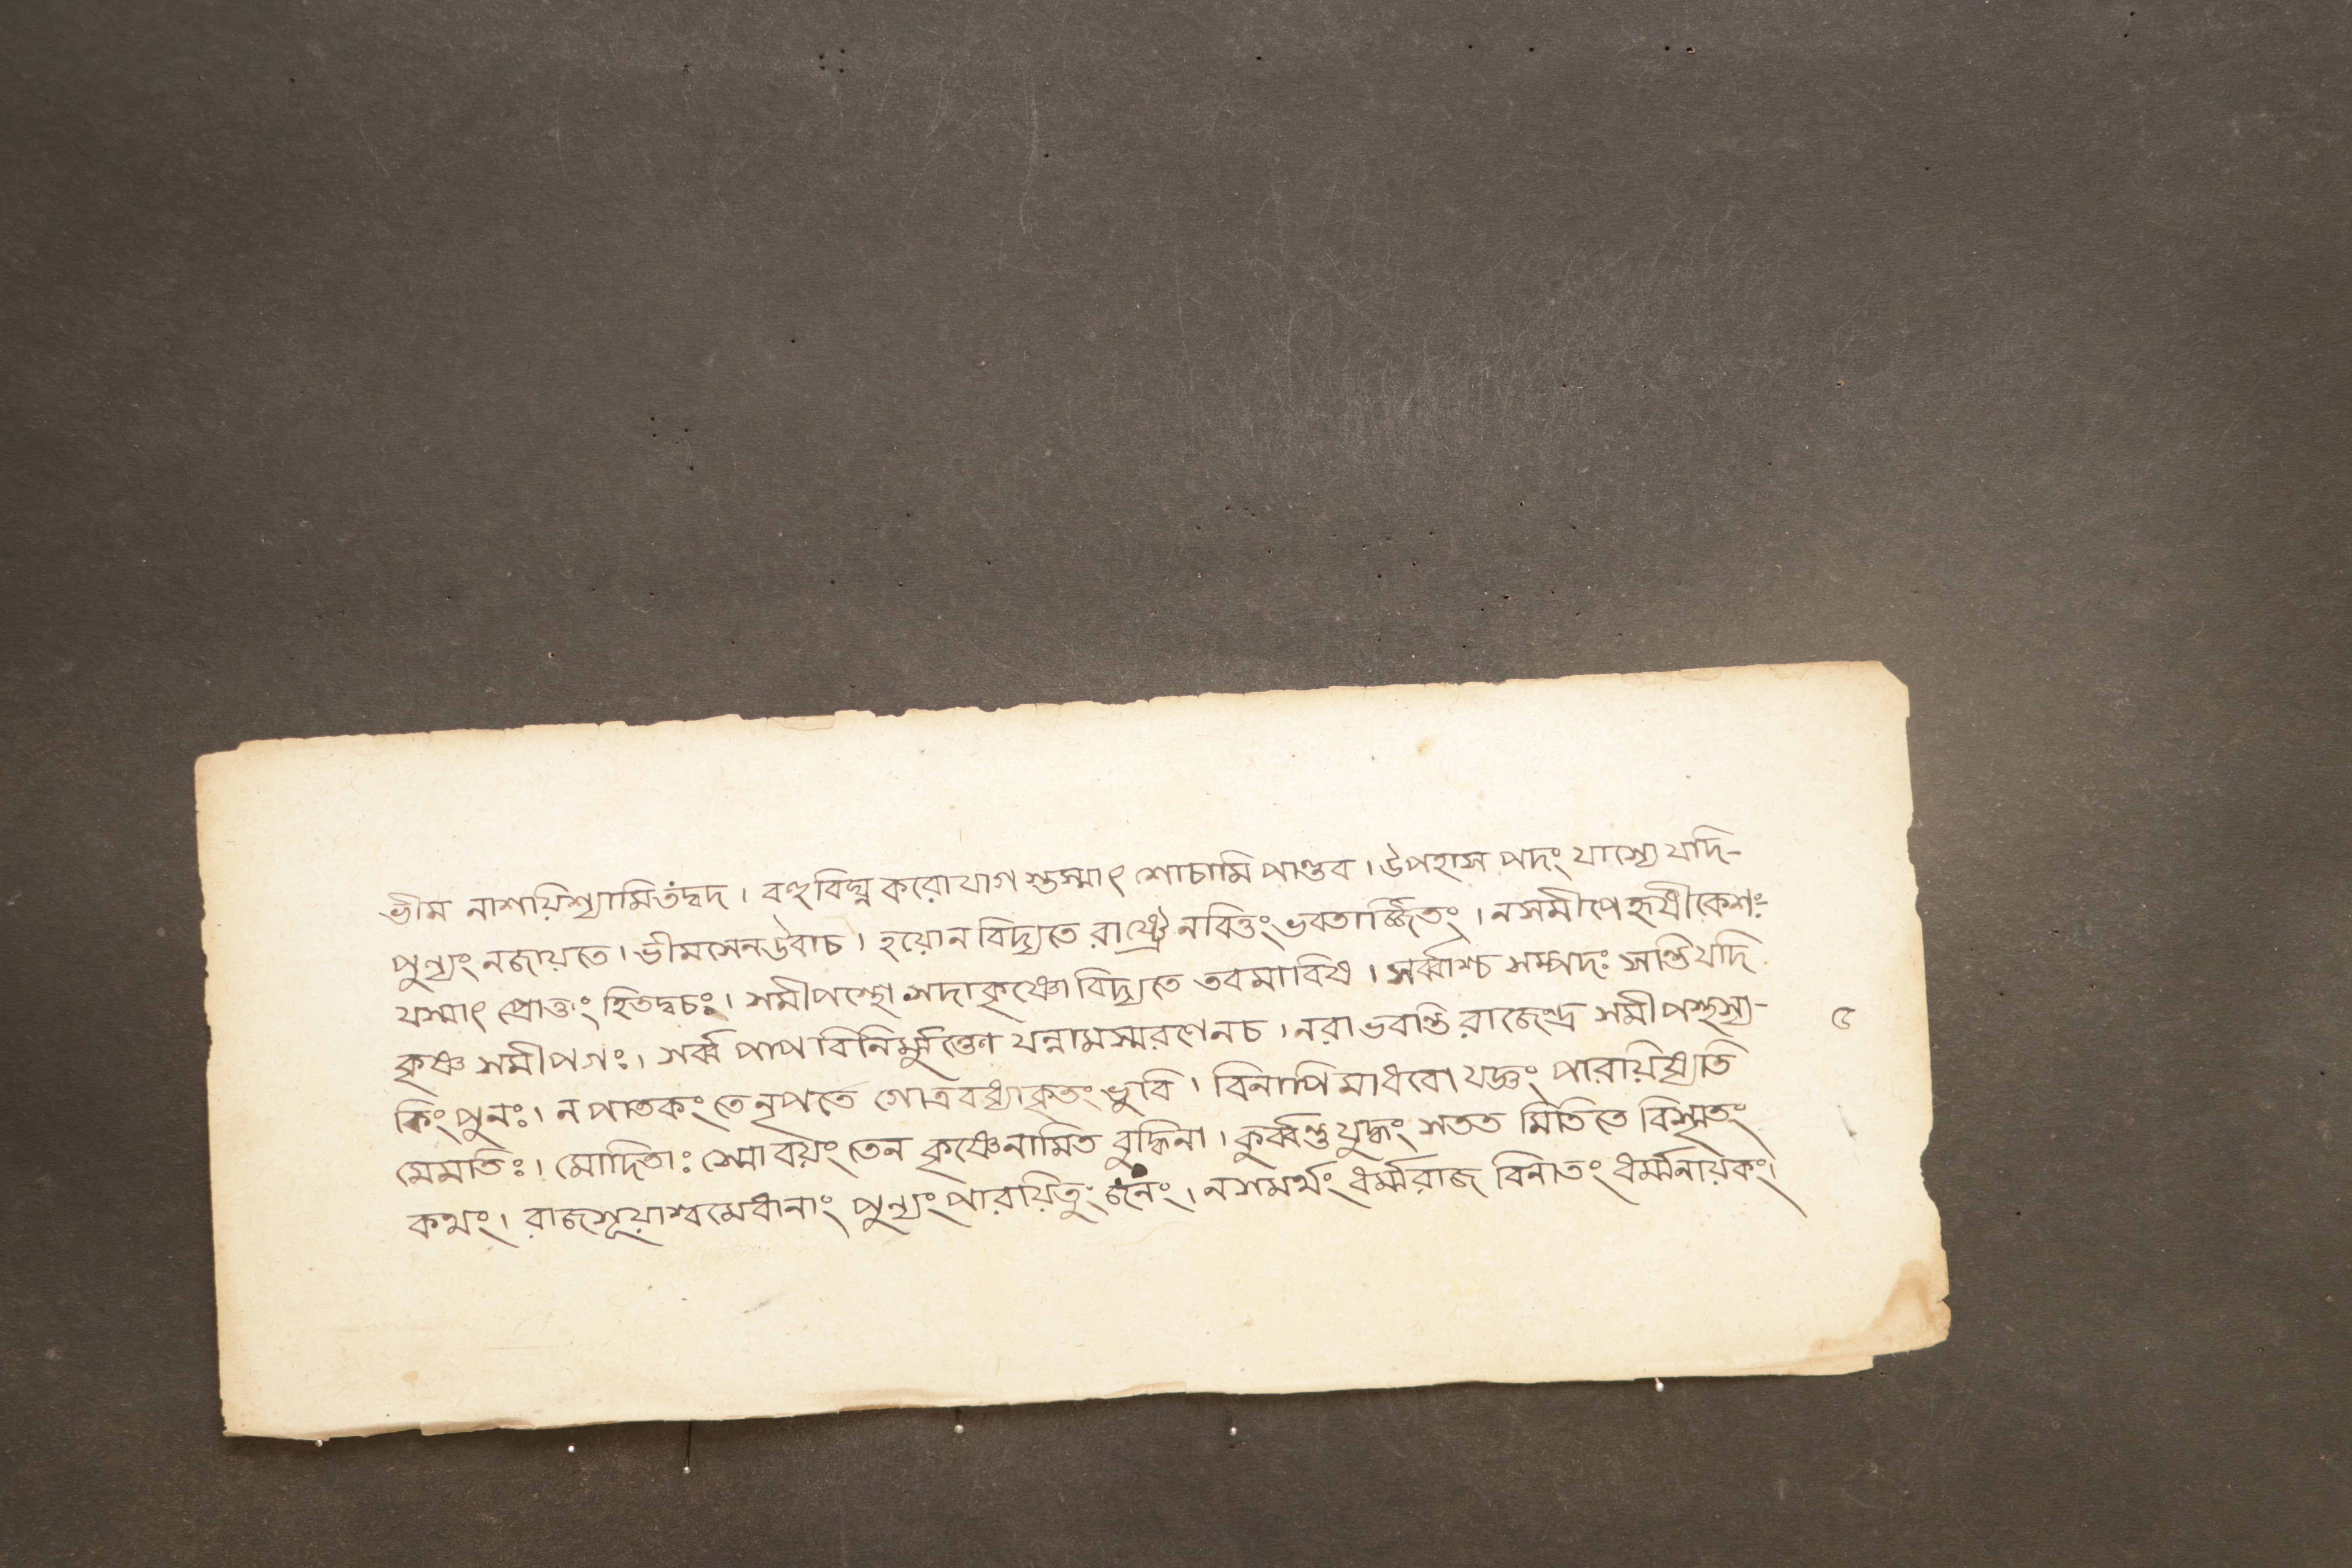 ভীম নাশয়িশ্যামিতংদ্বদ। বহুবিঘ্নকরোযাগ স্তস্মাৎ শোচামি পাণ্ডব। উপহাস পদং যাস্যে যদি-
পুণ্যং নজায়তে। ভীমসেনউবাচ। হয়োনবিদ্যতে রাষ্ট্রে নবিত্তং ভবতার্জ্জিতং। নসমীপে হৃষীকেশঃ-
যস্মাৎ প্রোক্তং হিতদ্বচঃ। সমীপস্থো সদাকৃষ্ণোবিদ্যতে তবমাবিষ। সর্ব্বাশ্চ সম্পদঃ সন্তিযদি
কৃষ্ণ সমীপগঃ। সর্ব্ব পাপ বিনির্ম্মুক্তেণ যন্নামস্মরণেনচ। নরাভবন্তি রাজেন্দ্র সমীপস্থস্য-
৫
কিংপুনঃ। ন পাতকং তেনৃপতে গোত্রবধ্যাকৃতং ভুবি। বিনাপি মাধবো যজ্ঞং পারয়িষ্যতি
মেমতিঃ। মোদিতাঃ স্মোবয়ং তেন কৃষ্ণেনামিত বুদ্ধিনা। কুর্ব্বন্তুযুদ্ধং সতত মিতিতে বিস্মৃতং
কথং। রাজসূয়াশ্বমেধানাং পুণ্যংপারয়িতুং জনং। নসমর্থং ধর্ম্মরাজ বিনাতং ধর্ম্মনায়কং।